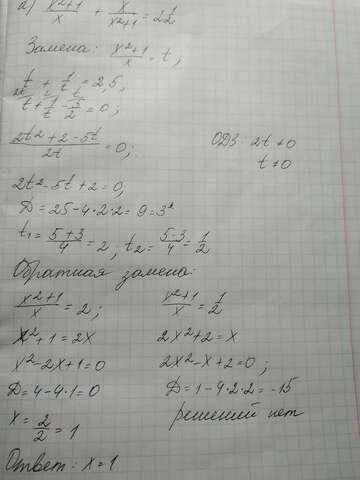 а) (x²+1)/x + x/(x²+1) = 2 1/2
Замена: (x²+1)/x = t,
t + 1/t = 2,5;
t + 1/t - 5/2 = 0;
(2t²+2-5t)/2t = 0; ОДЗ: 2t ≠ 0
t ≠ 0
2t²-5t+2=0;
D = 25-4·2·2 = 9 = 3²
t₁ = (5+3)/4 = 2, t₂ = (5-3)/4 = 1/2
Обратная замена:
(x²+1)/x = 2; (x²+1)/x = 1/2
x²+1=2x 2x²+2=x
x²-2x+1=0 2x²-x+2=0;
D=4-4·1=0 D=1-4·2·2=-15
x = 2/2 = 1 решений нет
Ответ: x=1